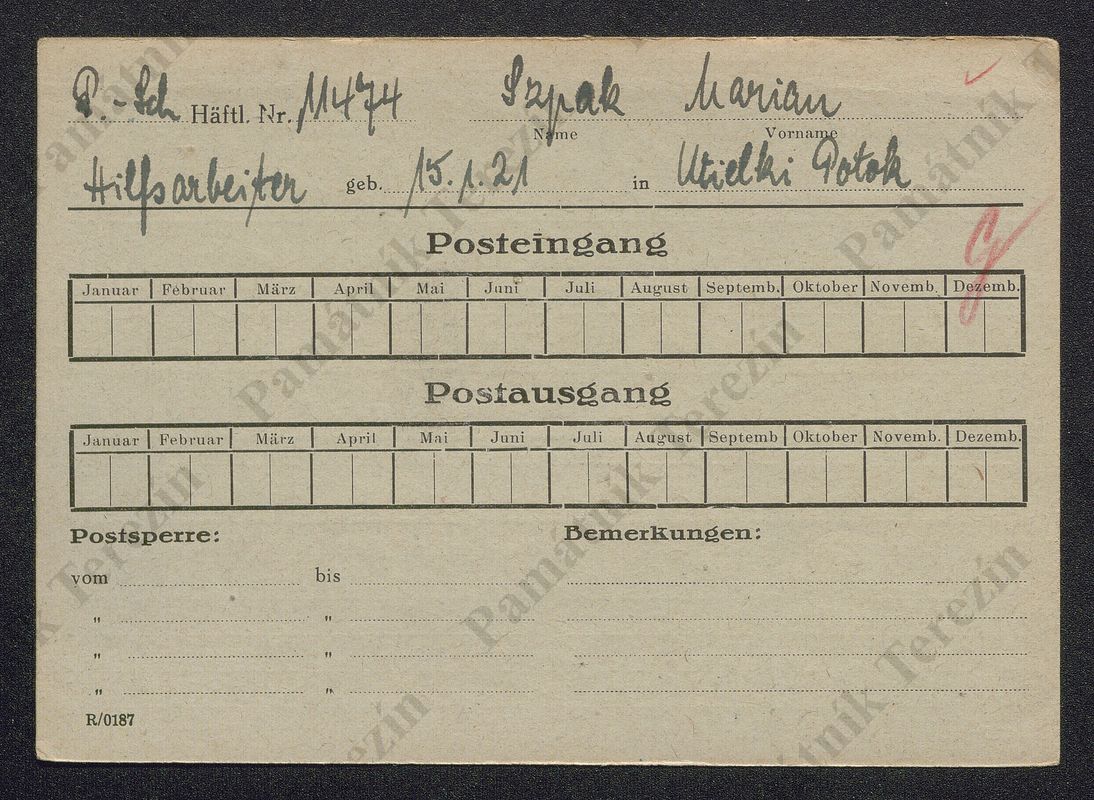 P.-Sch Häftl. Nr. 11474 Szpak Marian
Name Vorname
Hilfsarbeiter geb. 15.1.21 in Wielki Potok
Posteingang
Januar Februar März April Mai Juni Juli August Septemb. Oktober Novemb. Dezemb.
Postausgang
Januar Februar März April Mai Juni Juli August Septemb Oktober Novemb. Dezemb.
Postsperre: Bemerkungen:
vom bis
" "
" "
" "
R/0187
Památník Terezín